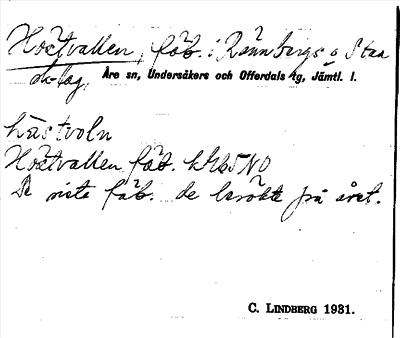 Höstvallen, fäb. i Rännbergs o Staa
sk-lag, Åre sn, Undersåkers och Offerdals tg, Jämtl. l.
hästvoln
Höstvallen fäb. kMb5NO
De sista fäb. de besökte på året.
C. LINDBERG 1931.